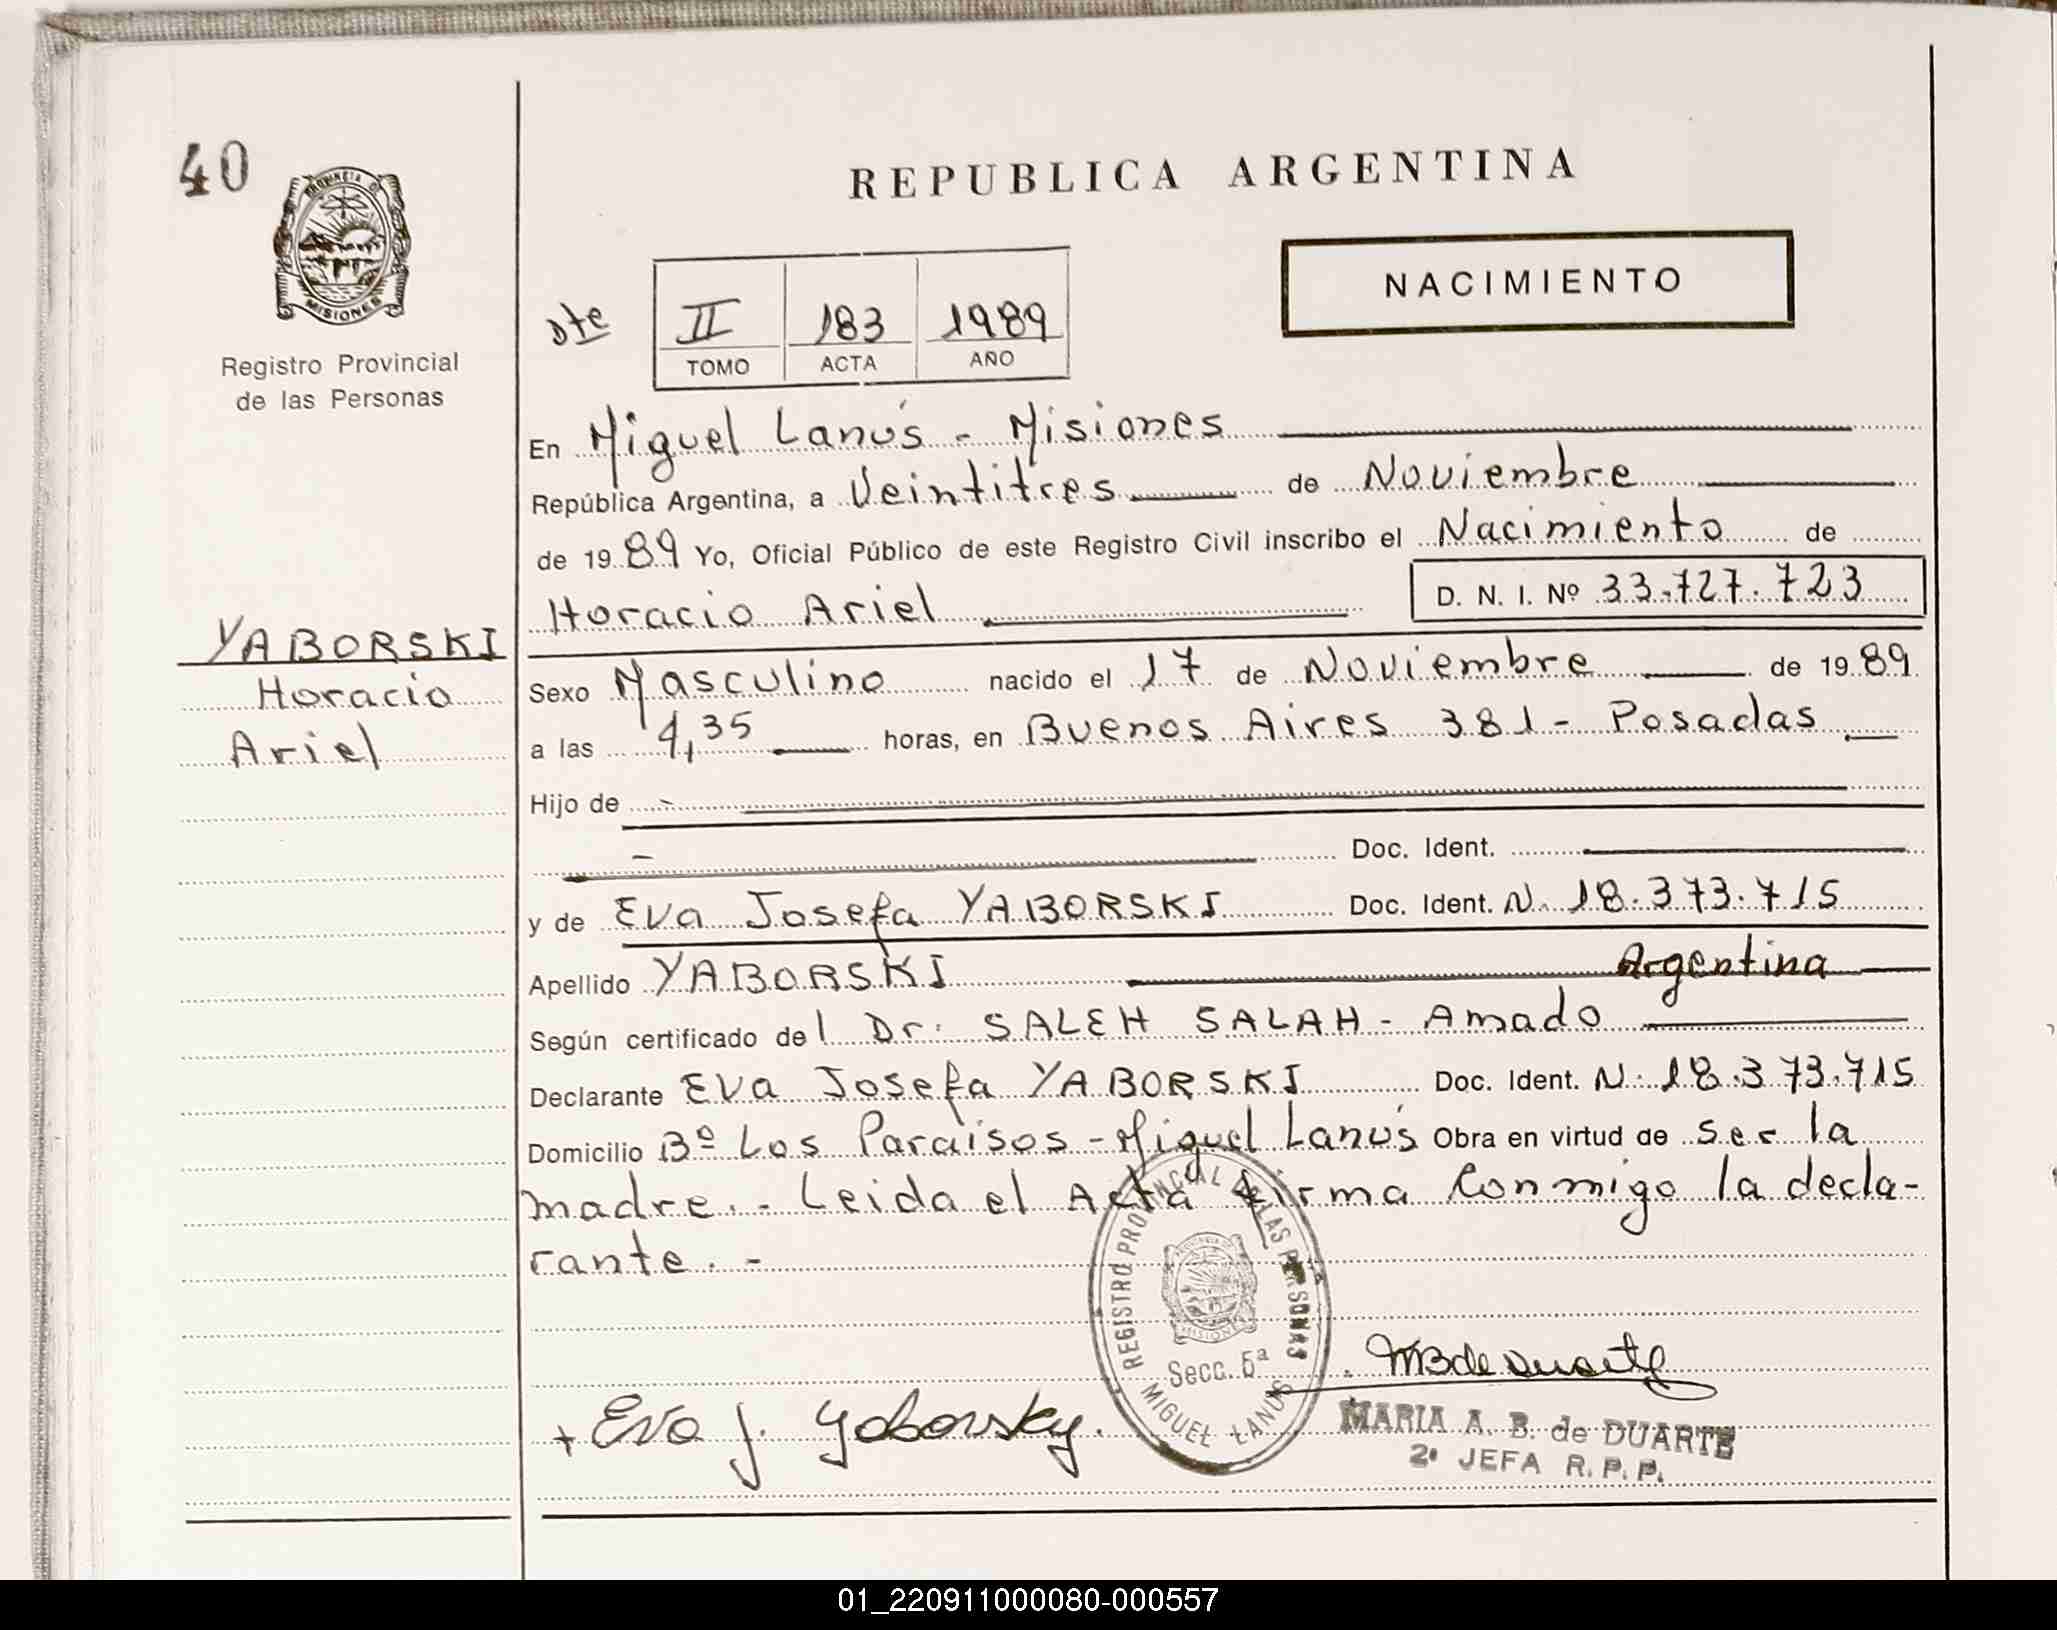 40
PROVINCIA DE
MISIONES
Registro Provincial
de las Personas
YABORSKI
Horacio
Ariel
REPUBLICA ARGENTINA
NACIMIENTO
Dte
II 183 1989
TOMO ACTA AÑO
En Miguel Lanús - Misiones
República Argentina, a Veintitres de Noviembre
de 1989 Yo, Oficial Público de este Registro Civil inscribo el Nacimiento de
Horacio Ariel D. N. I. Nº 33.727.723
Sexo Masculino nacido el 17 de Noviembre de 1989
a las 4,35 horas, en Buenos Aires 381 - Posadas
Hijo de -
- Doc. Ident.
y de Eva Josefa YABORSKI Doc. Ident. N. 18.373.715
Apellido YABORSKI Argentina
Según certificado del Dr: SALEH SALAH - Amado
Declarante Eva Josefa YABORSKI Doc. Ident. N. 18.373.715
Domicilio Bº Los Paraísos - Miguel Lanús Obra en virtud de ser la
madre. - Leida el Acta firma Conmigo la decla-
rante. -
REGISTRO PROVINCIAL DE LAS PERSONAS
MISIONES
Secc. 5ª
MIGUEL LANUS
MB de Duarte
+ Eva J. Yaborsky.
MARIA A. B. de DUARTE
2ª JEFA R. P. P.
01_220911000080-000557